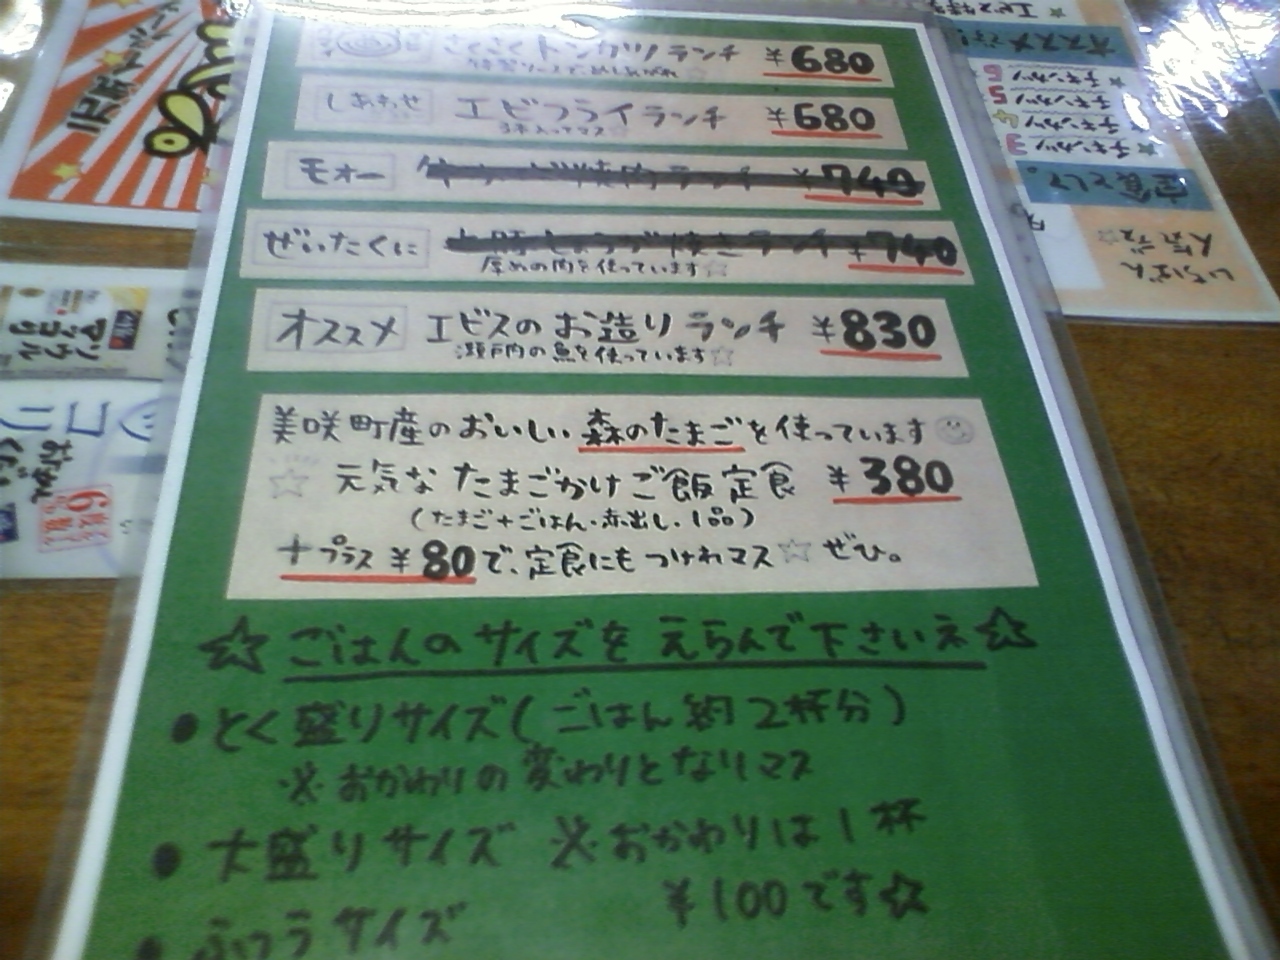 さくさく トンカツ ランチ ¥680
しあわせ エビフライランチ ¥680
3本入ってマス
モォー ランチ ¥740
ぜいたくに しょうが焼きランチ ¥740
厚めの肉を使っています☆
オススメ エビスのお造りランチ ¥830
瀬戸内の魚を使っています☆
美咲町産のおいしい森のたまごを使っています
☆ 元気なたまごかけご飯定食 ¥380
(たまご+ごはん・赤出し・1品)
+プラス¥80で、定食にもつけれマス☆ぜひ。
☆ごはんのサイズをえらんで下さいネ☆
●とく盛りサイズ(ごはん約2杯分)
※おかわりの変わりとなりマス
●大盛りサイズ ※おかわりは1杯
¥100です☆
●ふつうサイズ
オススメ
★チキンカツ
★チキンカツ
★チキンカツ
★チキンカツ
定食として。
いちばん
人気デス☆
マッコリ